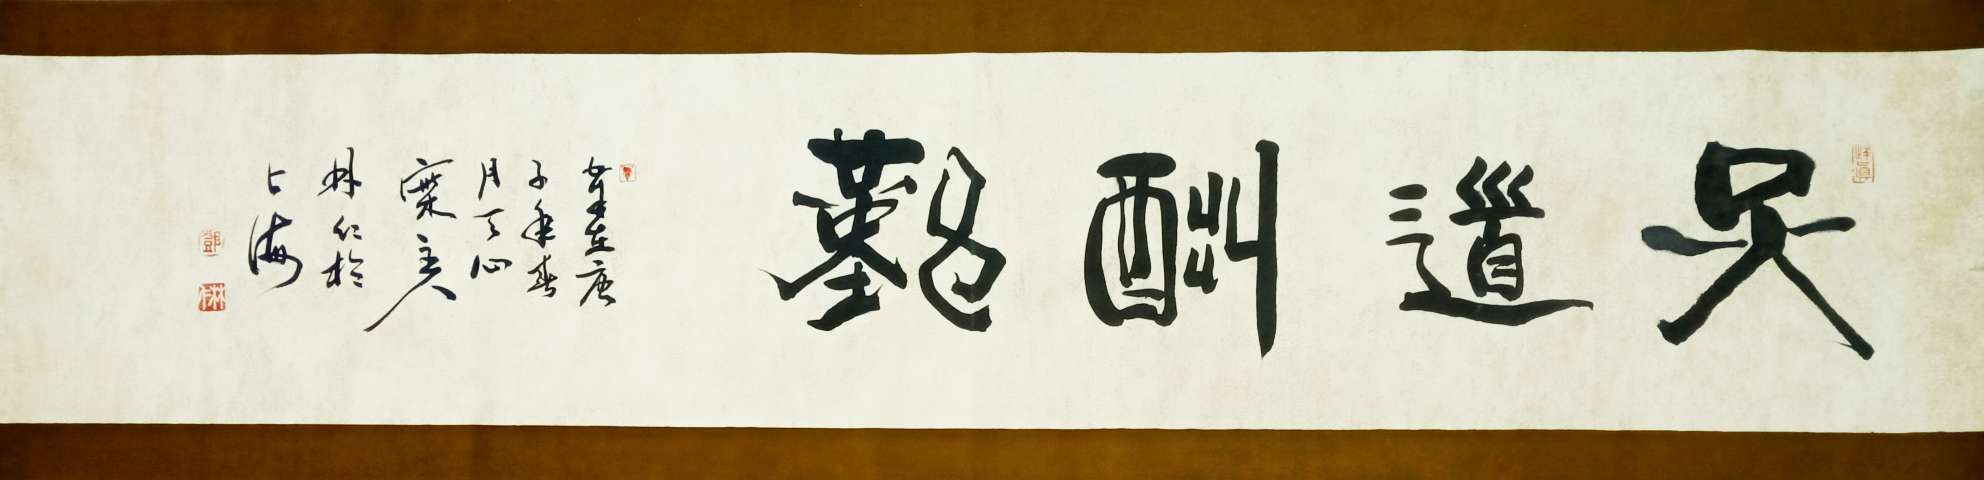 天道酬勤
岁在庚
子年春
月天心
主人
林仁於
上海
鄧